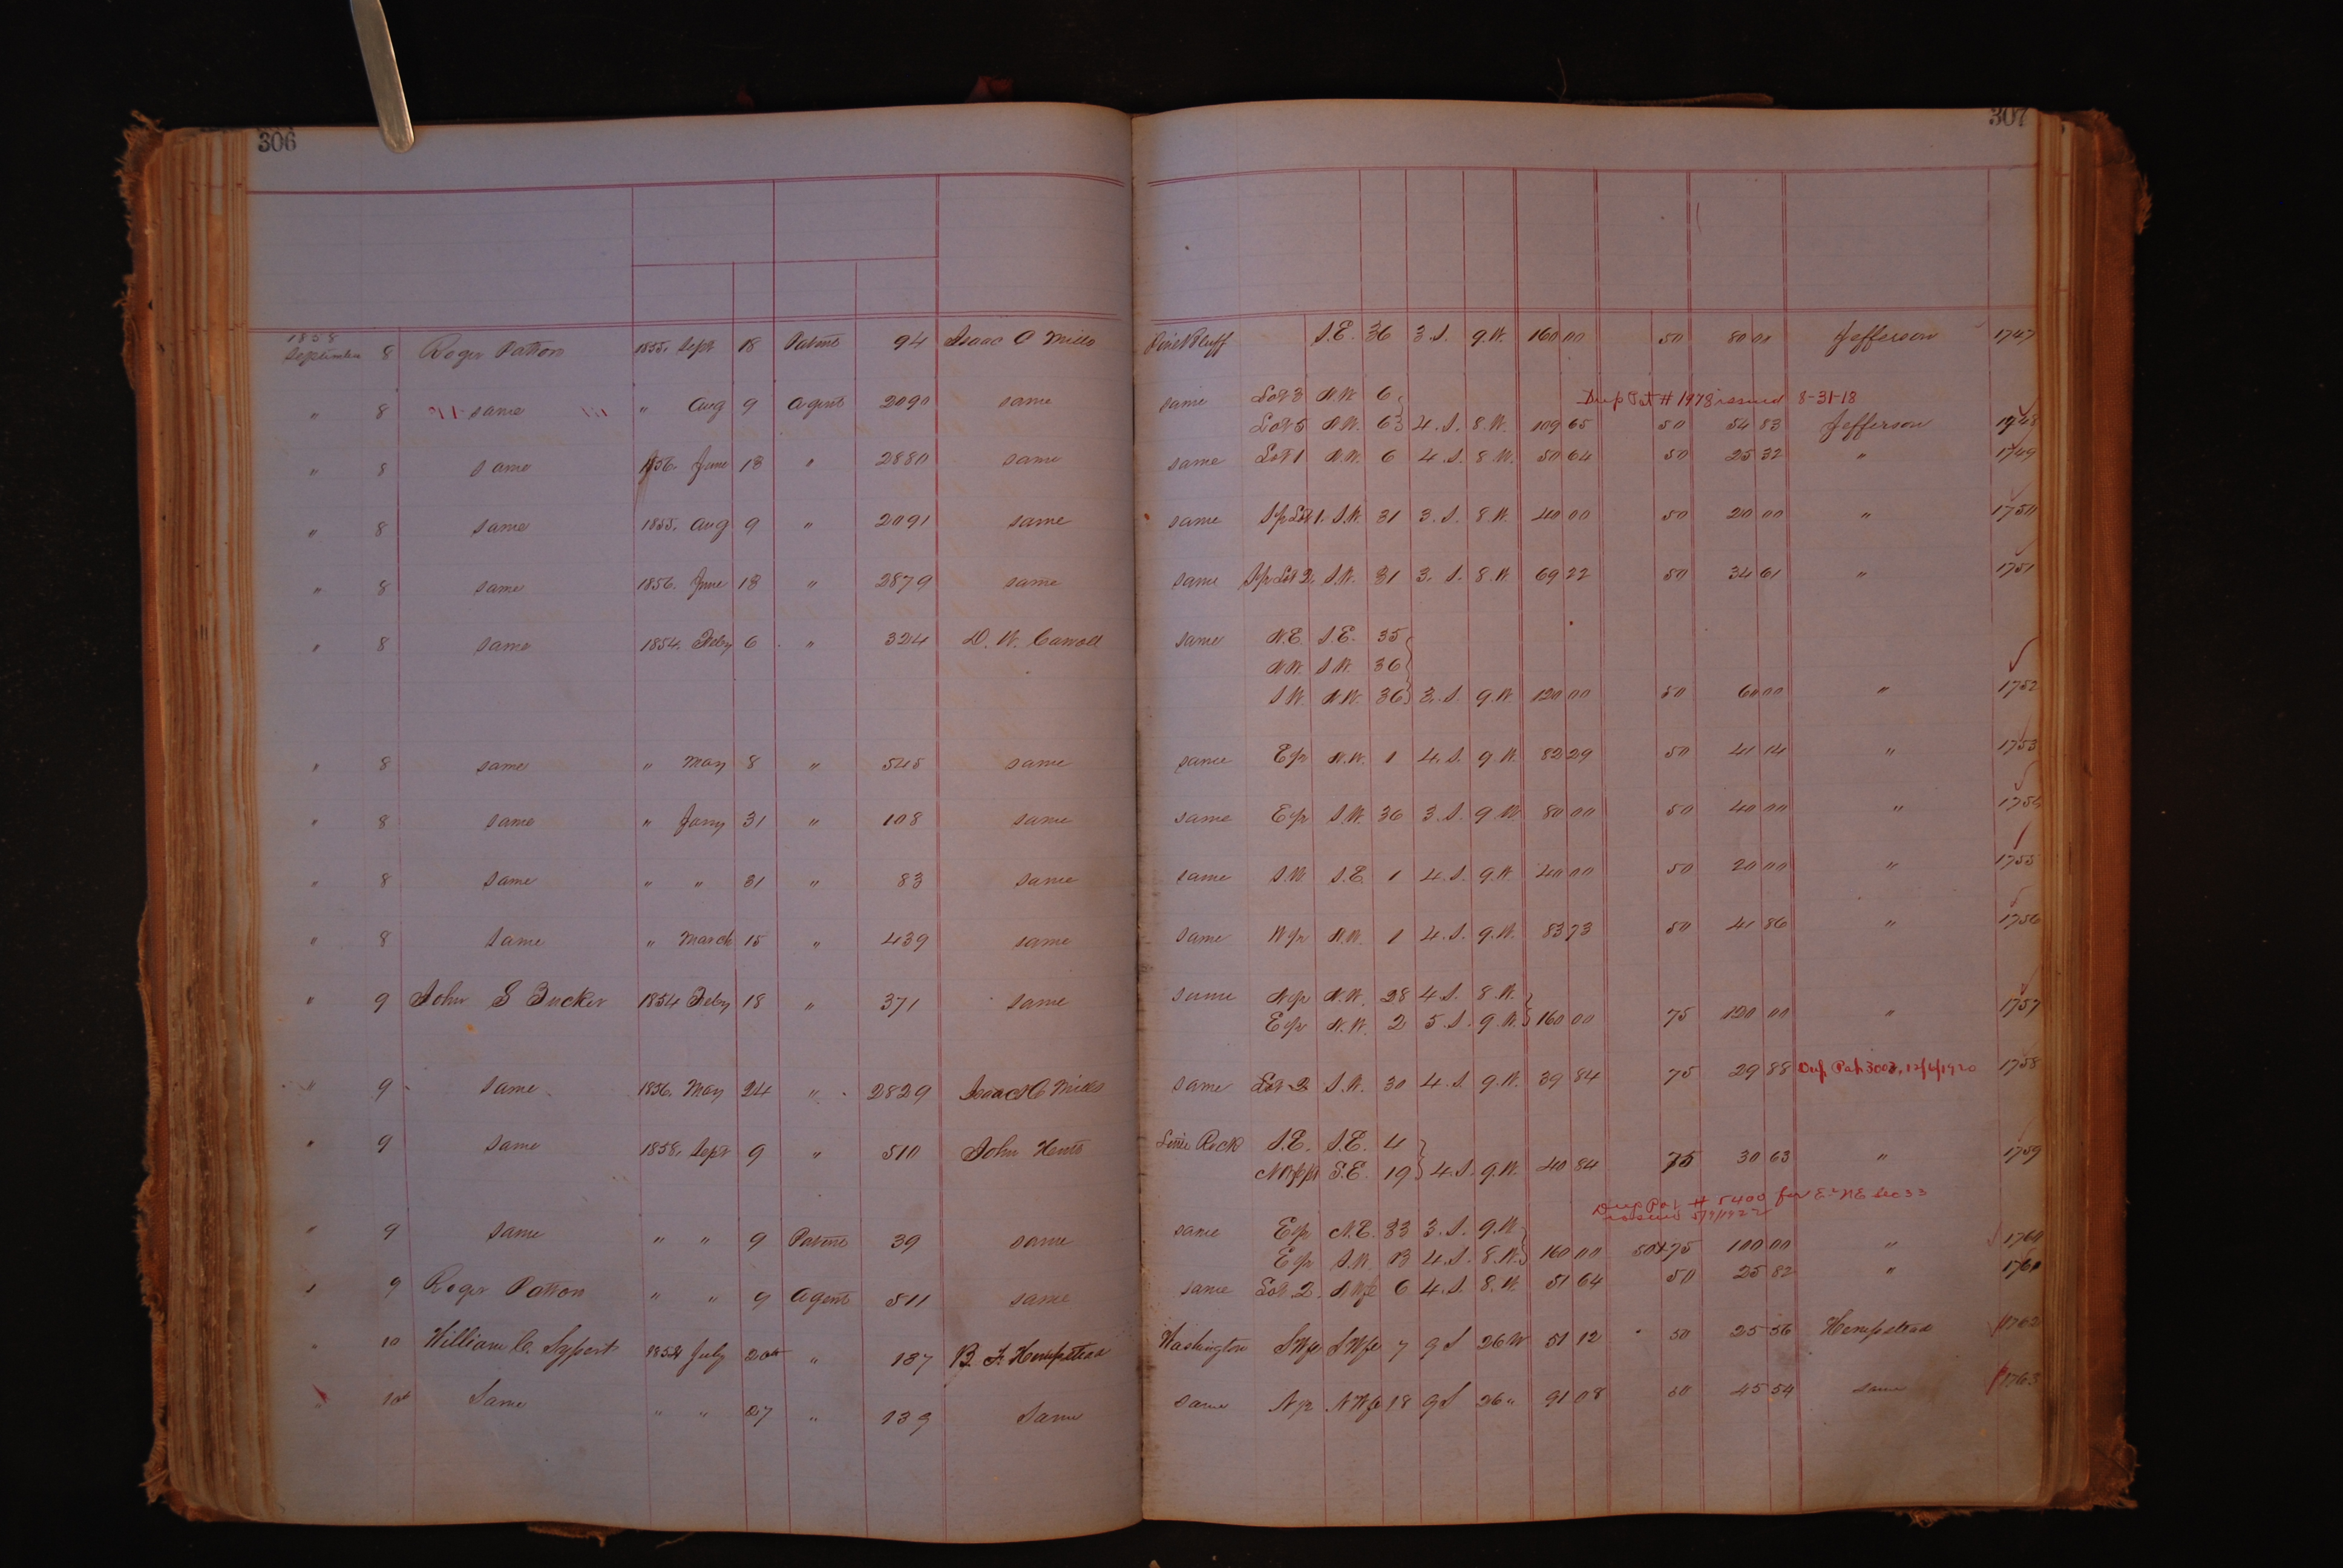 306
307
1858
September 8 Roger Patton 1855. Sept 18 Patent 94 Isaac C Mills Pine Bluff S.E. 36 3.S. 9.W. 160 00 50 80 00 Jefferson 1747
Dup Pat # 1978 issued 8-31-18
" 8 same " Aug 9 Agent 2090 same same Lot 3 N.W. 6
Lot 5 N.W. 6 4.S. 8.W. 109 65 50 54 83 Jefferson 1748
" 8 same 1856. June 13 " 2880 same same Lot 1 N.W. 6 4.S. 8.W. 50 64 50 25 32 " 1749
" 8 same 1855. Aug 9 " 2091 same same S½ Lot 1. S.W. 31 3.S. 8.W. 40 00 50 20 00 " 1750
" 8 same 1856. June 13 " 2879 same same S½ Lot 2. S.W. 31 3.S. 8.W. 69 22 50 34 61 " 1751
" 8 same 1854. Feby 6 " 324 D. W. Carroll same N.E S.E. 35
N.W. S.W. 36
S.W. N.W. 36 3.S. 9.W. 120 00 50 60 00 " 1752
" 8 same " May 8 " 545 same same E½ N.W. 1 4.S. 9.W. 82 29 50 41 14 " 1753
" 8 same " Jany 31 " 108 same same E½ S.W. 36 3.S. 9.W. 80 00 50 40 00 " 1754
" 8 same " " 31 " 83 same same S.W S.E. 1 4.S. 9.W. 40 00 50 20 00 " 1755
" 8 same " March 15 " 439 same same W½ N.W. 1 4.S. 9.W. 83 73 50 41 86 " 1756
" 9 John S Tucker 1854 Feby 18 " 371 same same N½ N.W. 28 4.S. 8.W.
E½ N.W. 2 5.S. 9.W. 160 00 75 120 00 " 1757
" 9 same 1856. May 24 " 2829 Isaac C Mills same Lot 2 S.W. 30 4.S. 9.W. 39 84 75 29 88 Dup Pat 3003, 12/6/1920 1758
" 9 same 1858. Sept 9 " 510 John Hents Little Rock S.E. S.E. 4
S.E. 19 4.S. 9.W. 40 84 75 30 63 " 1759
Dup Pat # 5400 for E½ NE Sec 33
issued 5/9/1922
" 9 same " " 9 Patent 39 same same E½ N.E. 33 3.S. 9.W
E½ S.W. 13 4.S. 8.W. 160 00 50&75 100 00 " 1760
" 9 Roger Patton " " 9 Agent 511 same same Lot 2. 6 4.S. 8.W. 51 64 50 25 82 " 1761
" 10 William C. Sypert 1854 July 20th " 137 B. F. Hempstead Washington 7 9 S 26 W 51 12 50 25 56 Hempstead 1762
" 10th Same " " 27 " 139 Same same N½ 18 9 S 26 " 91 08 50 45 54 same 1763